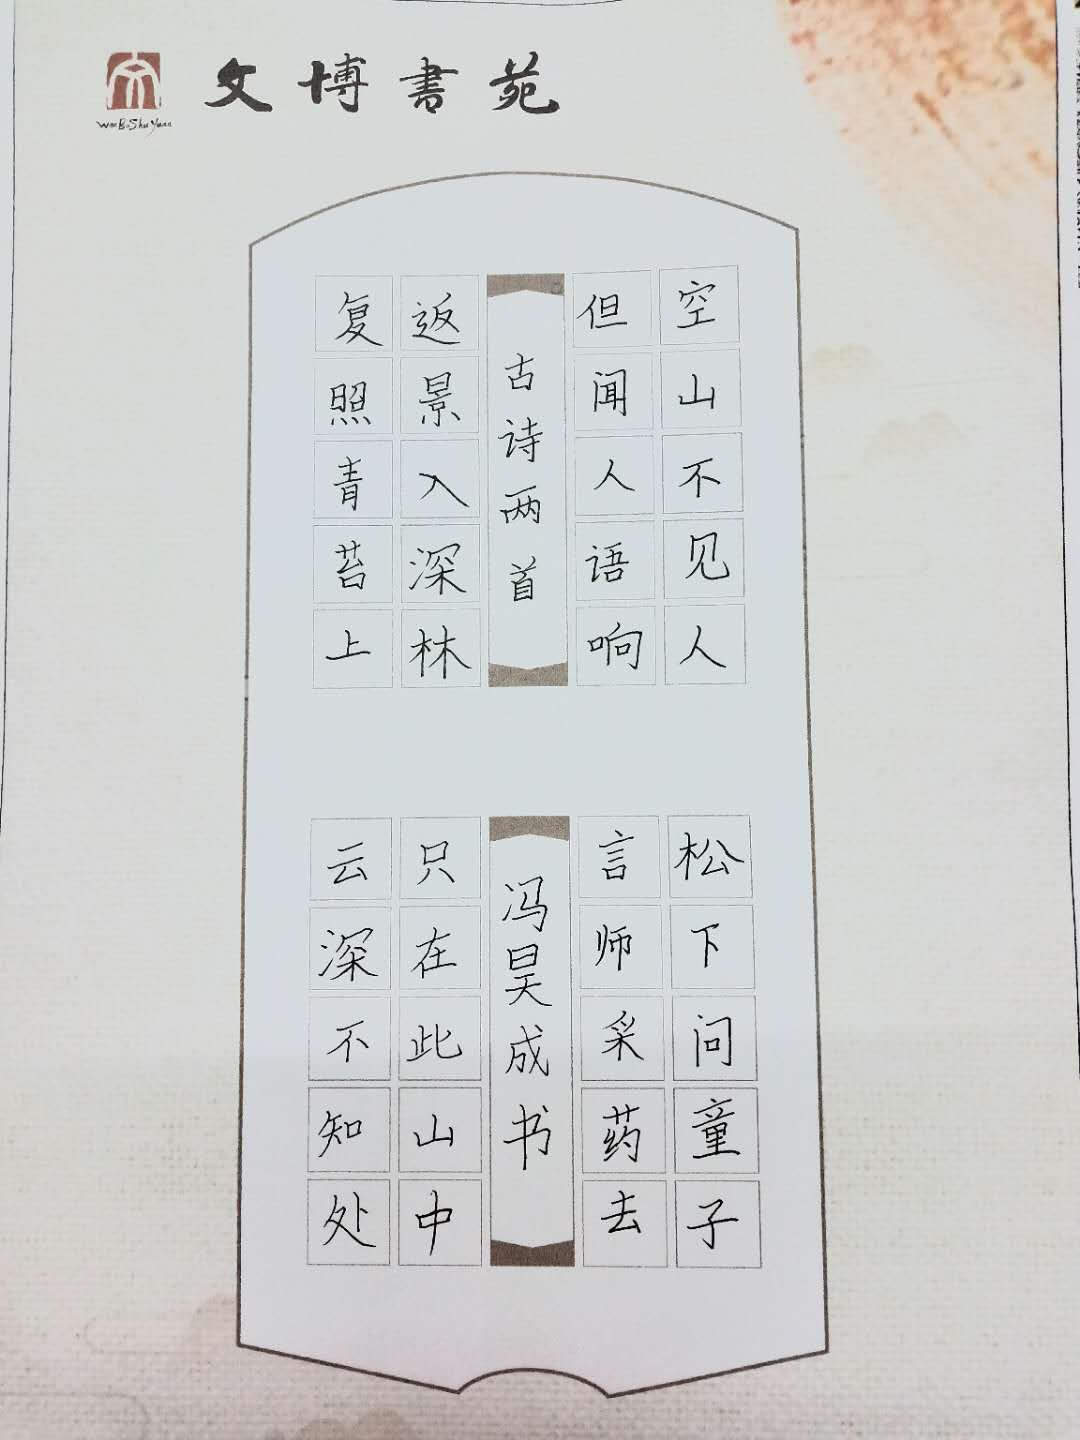 文博書苑
WenBoShuYuan
空山不见人
但闻人语响
古诗两首
返景入深林
复照青苔上
松下问童子
言师采药去
冯昊成书
只在此山中
云深不知处